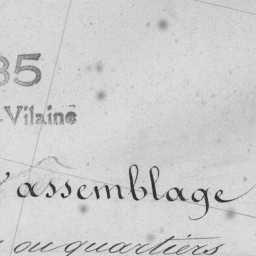 35
-Vilaine
'assemblage
ou quartiers